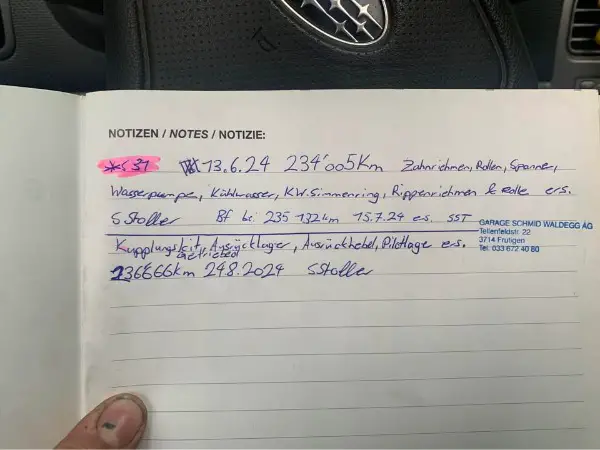 NOTIZEN / NOTES / NOTIZIE:
*< 31 13.6.24 234'005km Zahnriehmen, Rollen, Spanner,
Wasserpumpe, Kühlwasser, K.W. Simmenring, Rippenriehmen & Rolle ers.
S Stoller Bf bei 235 132km 15.7.24 es. SST
GARAGE SCHMID WALDEGG AG
Tellenfeldstr. 22
3714 Frutigen
Tel. 033 672 40 80
Kupplungskit, Ausrücklager, Ausrückhebel, Pilotlager ers.
Getriebeöl
236666km 24.8.2024 SStoller